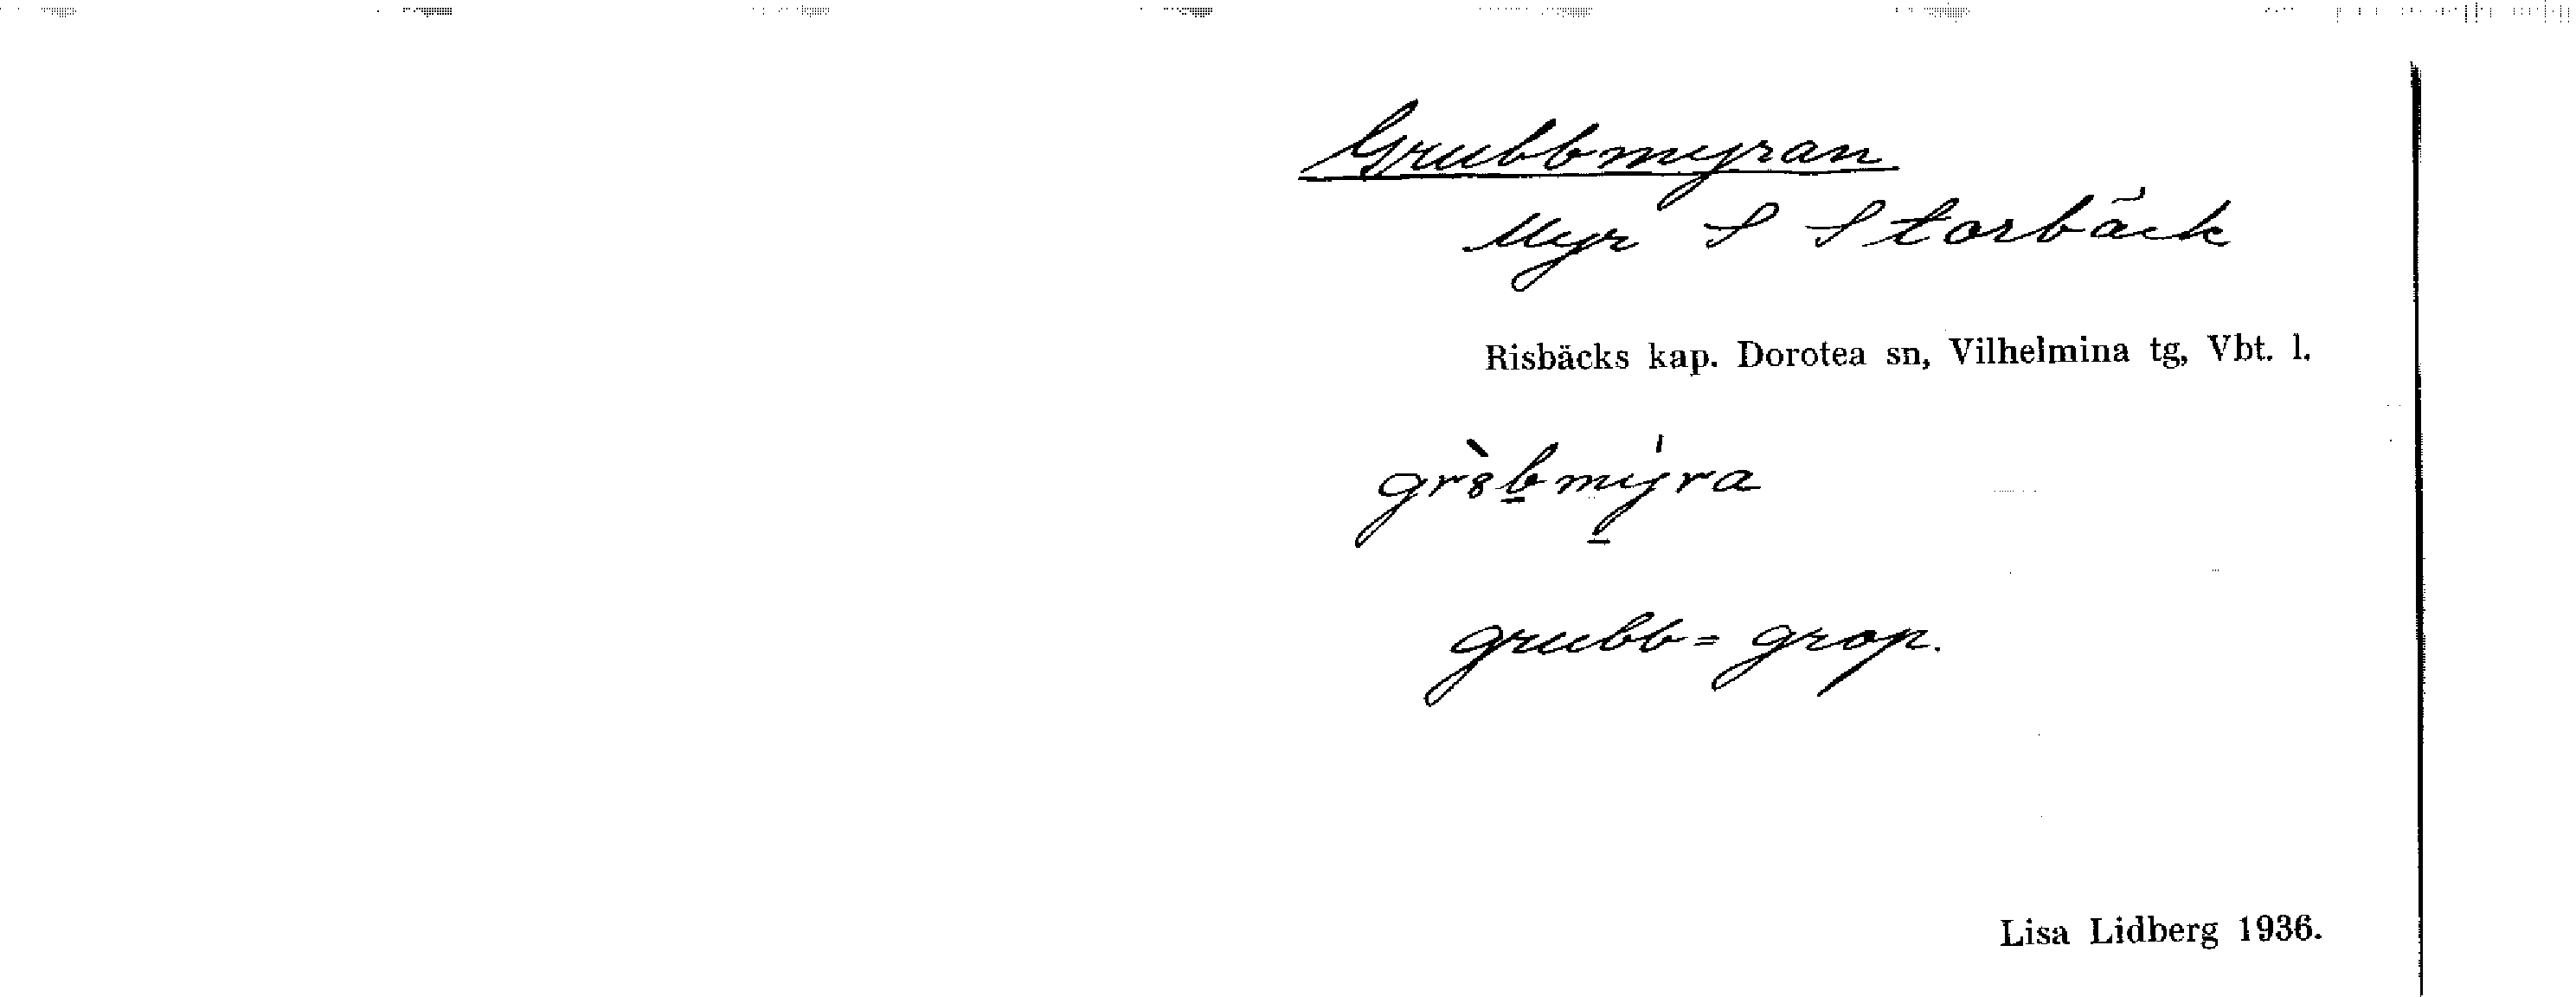 Grubbmyran
Myr S Storbäck
Risbäcks kap. Dorotea sn, Vilhelmina tg, Vbt. l.
gr8̀b̲mý̲ra
grubb = grop.
Lisa Lidberg 1936.